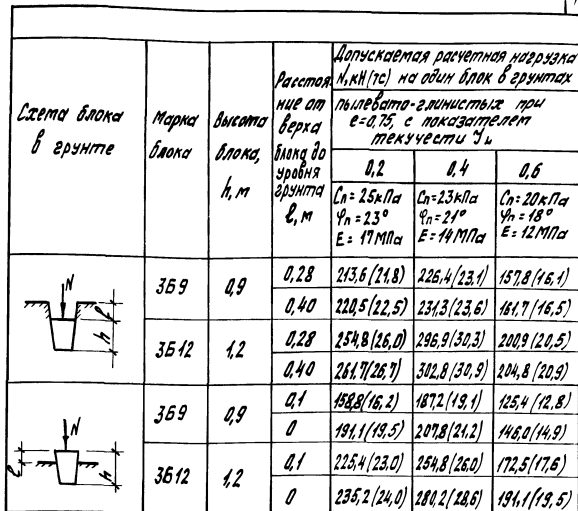 Схема блока
в грунте
Марка
блока
Высота
блока,
h, м
Расстоя-
ние от
верха
блока до
уровня
грунта
ℓ, м
Допускаемая расчетная нагрузка
N, кН (тс) на один блок в грунтах
пылевато-глинистых при
е=0,75, с показателем
текучести JL
0,2 0,4 0,6
Cn=25кПа Cn=23кПа Cn=20кПа
φn=23° φn=21° φn=18°
E=17МПа E=14МПа E=12МПа
N ℓ h
3Б9 0,9 0,28 213,6(21,8) 226,4(23,1) 157,8(16,1)
0,40 220,5(22,5) 231,3(23,6) 161,7(16,5)
3Б12 1,2 0,28 254,8(26,0) 296,9(30,3) 200,9(20,5)
0,40 261,7(26,7) 302,8(30,9) 204,8(20,9)
N ℓ h
3Б9 0,9 0,1 158,8(16,2) 187,2(19,1) 125,4(12,8)
0 191,1(19,5) 207,8(21,2) 146,0(14,9)
3Б12 1,2 0,1 225,4(23,0) 254,8(26,0) 172,5(17,6)
0 235,2(24,0) 280,2(28,6) 191,1(19,5)